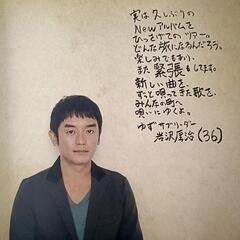 実は久しぶりの
Newアルバムを
ひっさげてのツアー。
どんな旅になるんだろう。
楽しみでもあり、
また緊張もしてます。
新しい曲を、
ずっと唄ってきた歌を、
みんなの町へ
唄いにゆくよ。
ゆず サブリーダー
岩沢厚治(36)